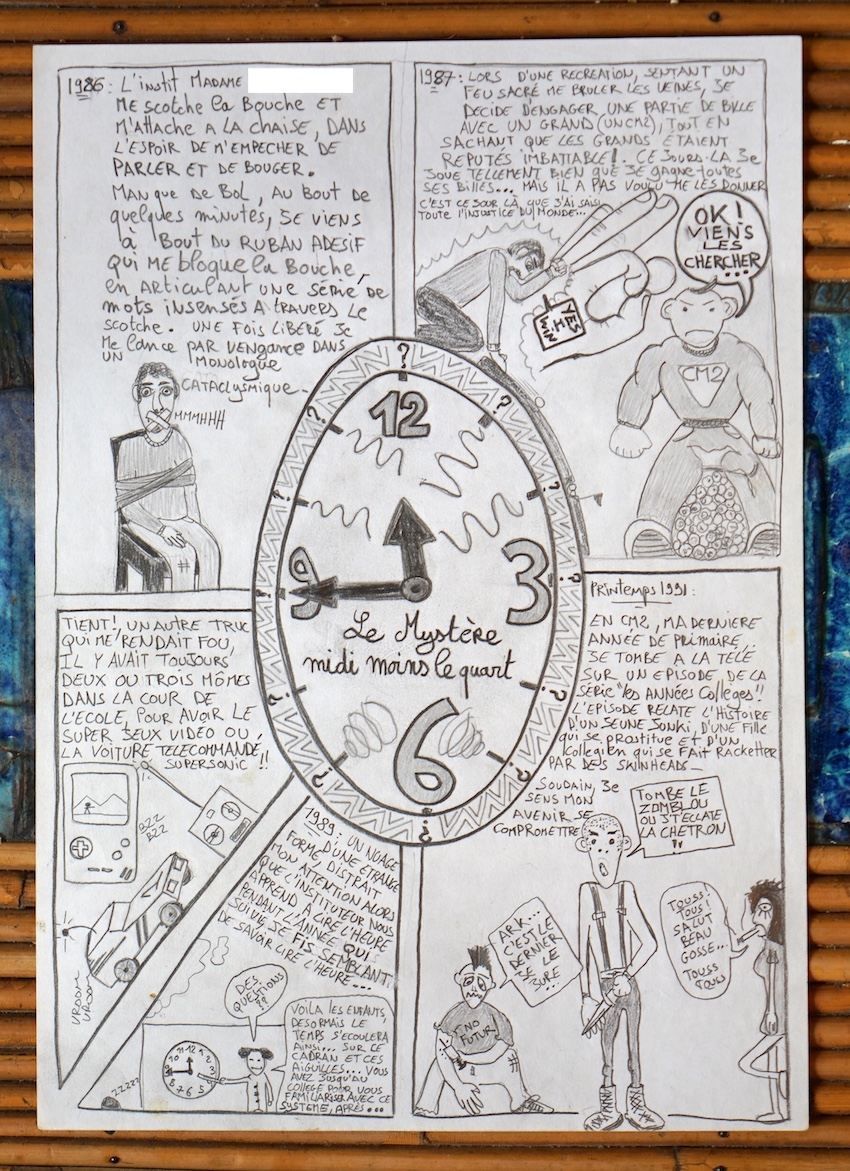 1986: L'instit Madame
me scotche la bouche et
m'attache a la chaise, dans
l'espoir de m'empecher de
parler et de bouger.
Manque de bol, au bout de
quelques minutes, je viens
à bout du ruban adesif
qui me bloque la bouche,
en articulant une série de
mots insensés a travers le
scotche. Une fois libéré je
me lance par vengance dans
un monologue
cataclysmique.
MMMHHH
1987: Lors d'une recreation, sentant un
feu sacré me bruler les veines, je
decide d'engager une partie de bille
avec un grand (un CM2), tout en
sachant que les grands étaient
reputés imbattable! Ce jours-là je
joue tellement bien que je gagne toutes
ses billes... mais il a pas voulu me les donner
c'est ce jour là que j'ai saisi
toute l'injustice du monde...
OK!
VIENS
LES
CHERCHER
...
YES
H.H
WIN
CM2
12
3
6
9
Le Mystère
midi moins le quart
Tient!, un autre truc
qui me rendait fou,
il y avait toujours
deux ou trois mômes
dans la cour de
l'ecole, pour avoir le
super jeux video ou,
la voiture telecommandé,
supersonic !!
BZZ
BZZ
VROOM
VROOM
1989: un nuage
d'une étrange
forme, distrait
mon attention alors
que l'instituteur nous
apprend à lire l'heure
pendant l'année qui
suivie, je fis semblant
de savoir lire l'heure...
Des
questions
??
Voila les enfants,
desormais le
temps s'ecoulera
ainsi... sur ce
cadran et ces
aiguilles... vous
avez jusqu'au
college pour vous
familiariser avec ce
systeme, après...
ZZZZZ
Printemps 1991:
En CM2, ma derniere
année de primaire,
je tombe a la télé
sur un episode de la
série "les années collèges"!
L'episode relate l'histoire
d'un jeune junki, d'une fille
qui se prostitue et d'un
collegien qui se fait racketter
par des skinheads_
Soudain, je
sens mon
avenir se
compromettre
Tombe le
zomblou
ou j't'eclate
la chetron
!!
Ark...
c'est le
dernier
je le
jure...
no
futur
Touss!
Tous!
Salut
beau
gosse...
Touss
Touss